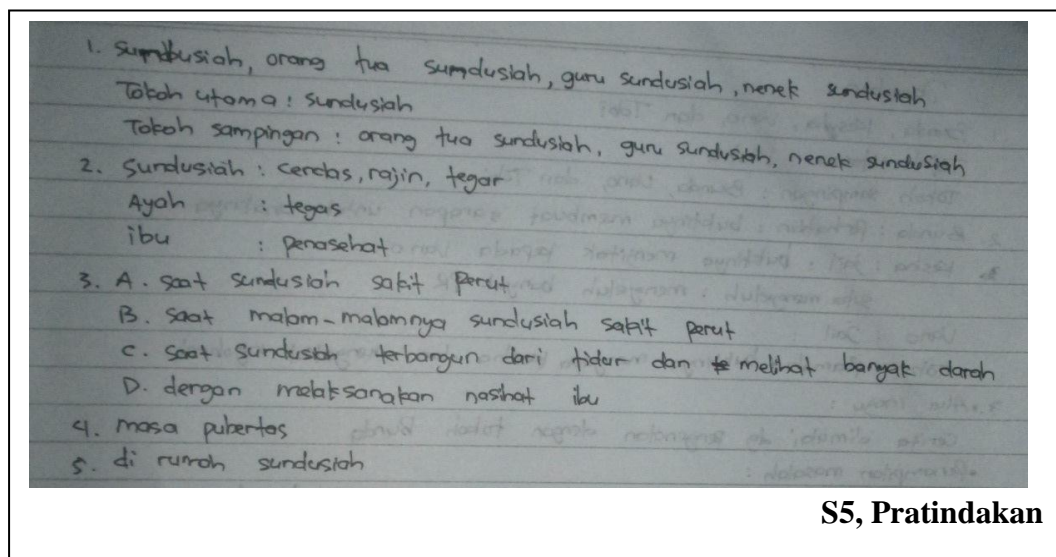 1. Sumdusiah, orang tua sumdusiah, guru sundusiah, nenek sundusiah
Tokoh utama : sundusiah
Tokoh sampingan : orang tua sundusiah, guru sundusiah, nenek sundusiah
2. Sundusiah : cerdas, rajin, tegar
Ayah : tegas
ibu : penasehat
3. A. saat sundusiah sakit perut
B. saat malam-malamnya sundusiah sakit perut
C. saat sundusiah terbangun dari tidur dan melihat banyak darah
D. dengan melaksanakan nasihat ibu
4. masa pubertas
5. di rumah sundusiah
S5, Pratindakan